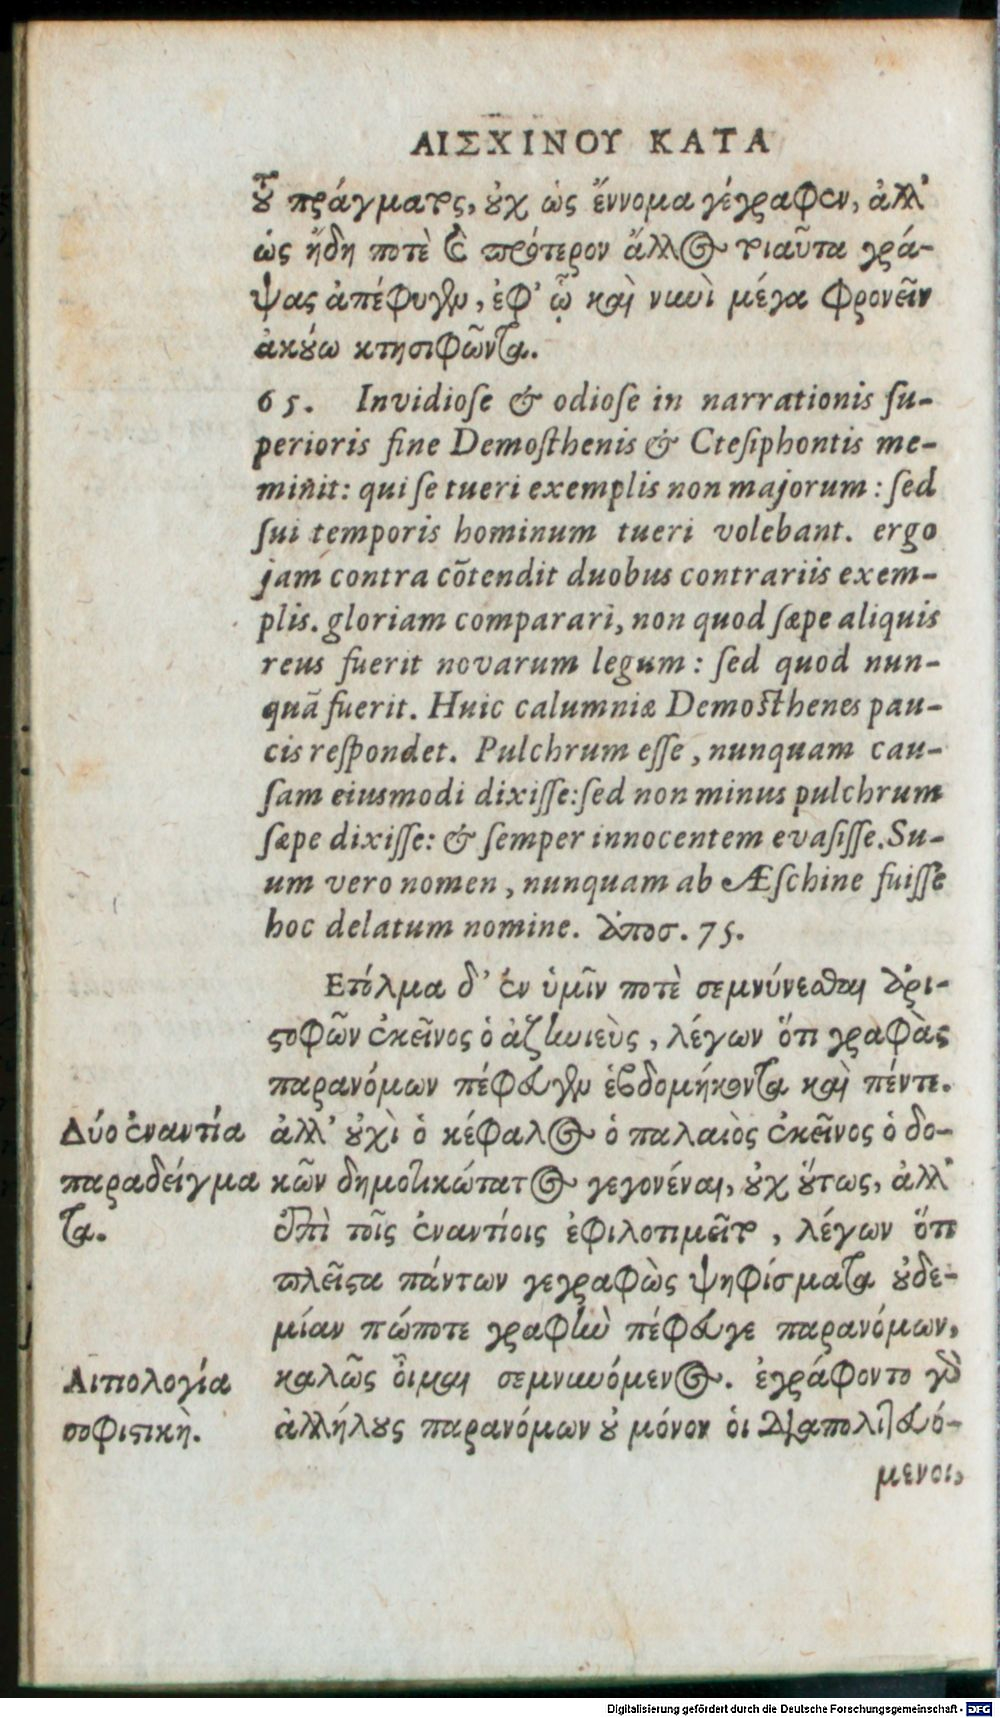 ΑΙΣΧΙΝΟΥ ΚΑΤΑ
τοῦ πράγματος, οὐχ ὡς ἔννομα γέγραφεν, ἀλλ'
ὡς ἤδη ποτὲ καὶ πρότερον ἄλλος τοιαῦτα γρά-
ψας ἀπέφυγεν, ἐφ' ᾧ καὶ νυνὶ μέγα φρονεῖν
ἀκούω κτησιφῶντα.
65. Invidioſe & odioſe in narrationis ſu-
perioris fine Demoſthenis & Cteſiphontis me-
minit: qui ſe tueri exemplis non majorum : ſed
ſui temporis hominum tueri volebant. ergo
jam contra cõtendit duobus contrariis exem-
plis. gloriam comparari, non quod ſæpe aliquis
reus fuerit novarum legum : ſed quod nun-
quã fuerit. Huic calumniæ Demoſthenes pau-
cis reſpondet. Pulchrum eſſe, nunquam cau-
ſam eiusmodi dixiſſe: ſed non minus pulchrum
ſæpe dixiſſe: & ſemper innocentem evaſiſſe. Su-
um vero nomen, nunquam ab Æſchine fuiſſe
hoc delatum nomine. ἀποσ. 75.
Ετόλμα δ' ἐν ὑμῖν ποτὲ σεμνύνεσθαι ἀρι-
στοφῶν ἐκεῖνος ὁ ἀζηνιεὺς, λέγων ὅτι γραφὰς
παρανόμων πέφευγεν ἑβδομήκοντα καὶ πέντε.
Δύο ἐναντία
παραδείγμα
τα.
ἀλλ' οὐχὶ ὁ κέφαλος ὁ παλαιὸς ἐκεῖνος ὁ δο-
κῶν δημοτικώτατος γεγονέναι, οὐχ οὕτως, ἀλλ'
ἐπὶ τοῖς ἐναντίοις ἐφιλοτιμεῖτο, λέγων ὅτι
πλεῖστα πάντων γεγραφὼς ψηφίσματα οὐδε-
μίαν πώποτε γραφὴν πέφευγε παρανόμων,
Αιτιολογία
σοφιστικὴ.
καλῶς οἶμαι σεμνυνόμενος. ἐγράφοντο γὰρ
ἀλλήλους παρανόμων οὐ μόνον οἱ διαπολιτευό-
μενοι,
Digitalisierung gefördert durch die Deutsche Forschungsgemeinschaft - DFG